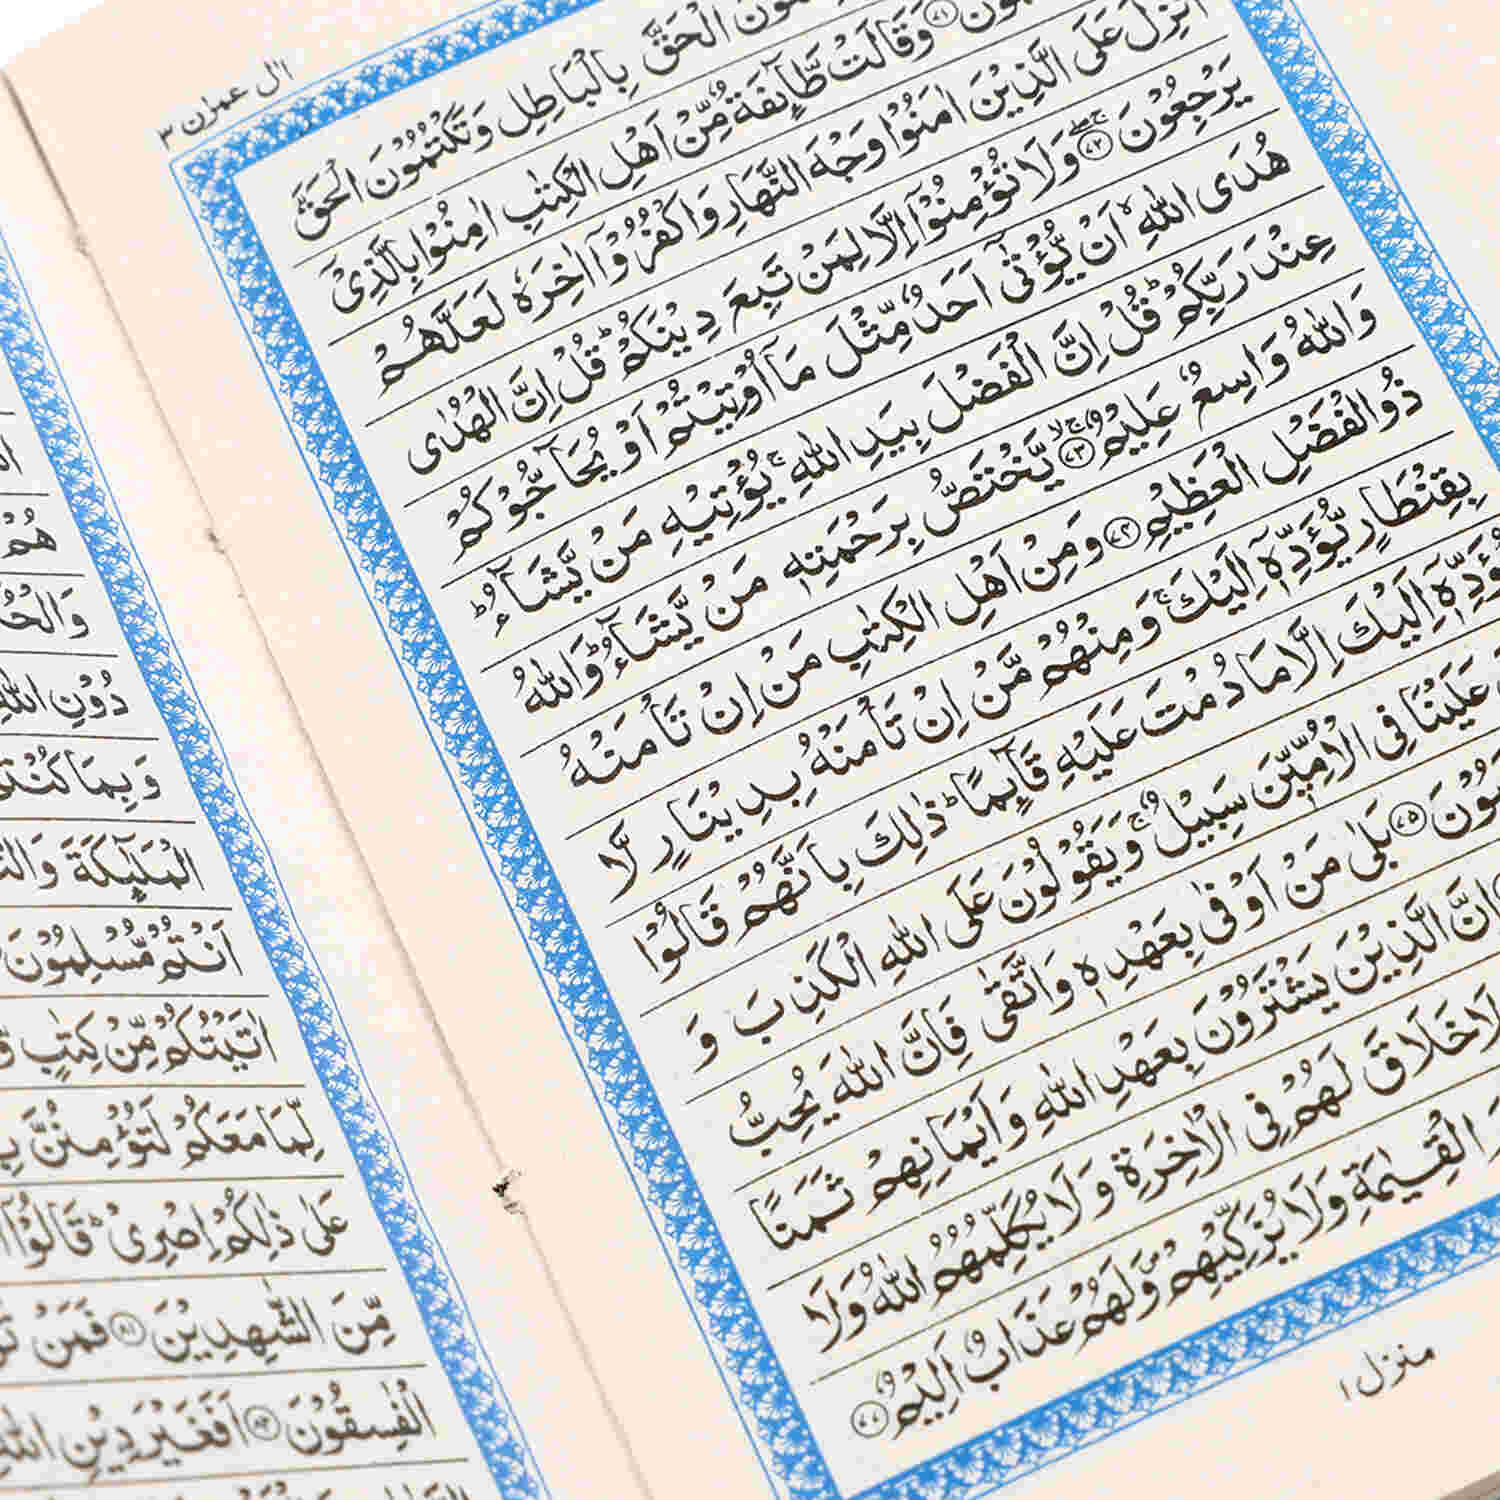 اٰل عمرٰن ٣
الْحَقَّ بِالْبَاطِلِ وَتَكْتُمُوْنَ الْحَقَّ
٧١ وَقَالَتْ طَّآئِفَةٌ مِّنْ اَهْلِ الْكِتٰبِ اٰمِنُوْا بِالَّذِيْۤ
اُنْزِلَ عَلَى الَّذِيْنَ اٰمَنُوْا وَجْهَ النَّهَارِ وَاكْفُرُوْۤا اٰخِرَهٗ لَعَلَّهُمْ
يَرْجِعُوْنَ ٧٢ وَلَا تُؤْمِنُوْۤا اِلَّا لِمَنْ تَبِعَ دِيْنَكُمْ ؕ قُلْ اِنَّ الْهُدٰى
هُدَى اللّٰهِ ۙ اَنْ يُّؤْتٰۤى اَحَدٌ مِّثْلَ مَاۤ اُوْتِيْتُمْ اَوْ يُحَآجُّوْكُمْ
عِنْدَ رَبِّكُمْ ؕ قُلْ اِنَّ الْفَضْلَ بِيَدِ اللّٰهِ ۚ يُؤْتِيْهِ مَنْ يَّشَآءُ ؕ
وَاللّٰهُ وَاسِعٌ عَلِيْمٌ ٧٣ يَّخْتَصُّ بِرَحْمَتِهٖ مَنْ يَّشَآءُ ؕ وَاللّٰهُ
ذُو الْفَضْلِ الْعَظِيْمِ ٧٤ وَمِنْ اَهْلِ الْكِتٰبِ مَنْ اِنْ تَاْمَنْهُ
بِقِنْطَارٍ يُّؤَدِّهٖۤ اِلَيْكَ ۚ وَمِنْهُمْ مَّنْ اِنْ تَاْمَنْهُ بِدِيْنَارٍ لَّا
يُؤَدِّهٖۤ اِلَيْكَ اِلَّا مَا دُمْتَ عَلَيْهِ قَآئِمًا ؕ ذٰلِكَ بِاَنَّهُمْ قَالُوْا
عَلَيْنَا فِى الْاُمِّيّٖنَ سَبِيْلٌ ۚ وَيَقُوْلُوْنَ عَلَى اللّٰهِ الْكَذِبَ وَ
٧٥ بَلٰى مَنْ اَوْفٰى بِعَهْدِهٖ وَاتَّقٰى فَاِنَّ اللّٰهَ يُحِبُّ
اِنَّ الَّذِيْنَ يَشْتَرُوْنَ بِعَهْدِ اللّٰهِ وَاَيْمَانِهِمْ ثَمَنًا
لَا خَلَاقَ لَهُمْ فِى الْاٰخِرَةِ وَلَا يُكَلِّمُهُمُ اللّٰهُ وَلَا
الْقِيٰمَةِ وَلَا يُزَكِّيْهِمْ وَلَهُمْ عَذَابٌ اَلِيْمٌ ٧٧
منزل ١
هُمْ
وَالْحُ
دُوْنِ اللّٰهِ
وَبِمَا كُنْتُ
الْمَلٰٓئِكَةَ
اَنْتُمْ مُّسْلِمُوْنَ
اٰتَيْتُكُمْ مِّنْ كِتٰبٍ
لِّمَا مَعَكُمْ لَتُؤْمِنُنَّ
عَلٰى ذٰلِكُمْ اِصْرِيْ ؕ قَالُوْۤا
مِّنَ الشّٰهِدِيْنَ ٨١ فَمَنْ
الْفٰسِقُوْنَ ٨٢ اَفَغَيْرَ دِيْنِ اللّٰهِ